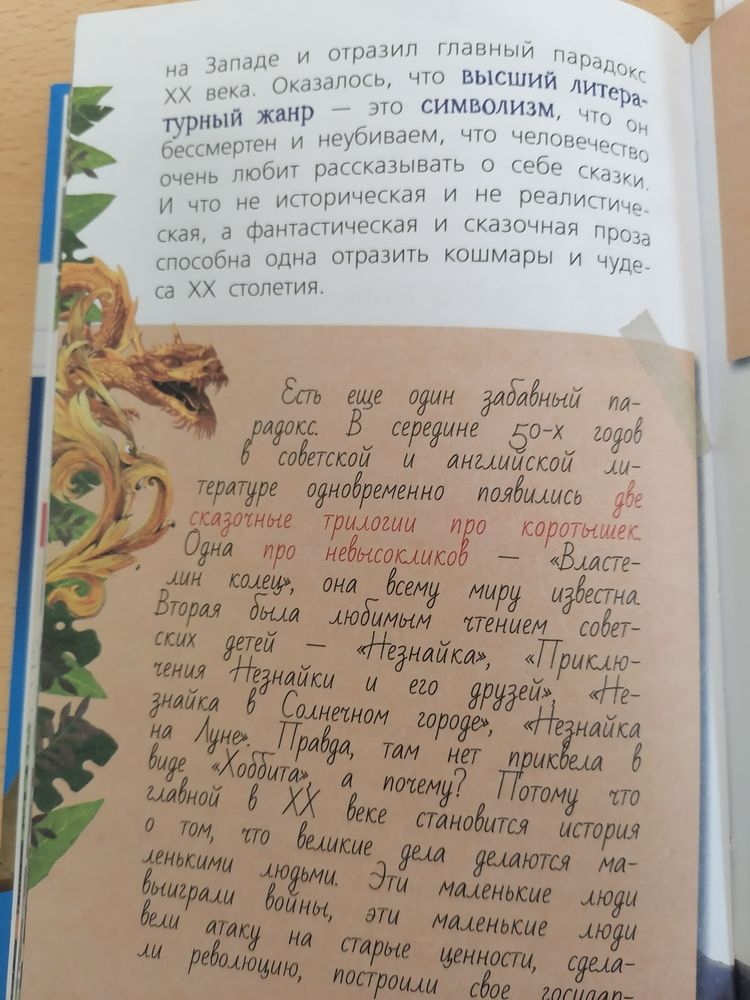 на Западе и отразил главный парадокс
XX века. Оказалось, что высший литера-
турный жанр — это символизм, что он
бессмертен и неубиваем, что человечество
очень любит рассказывать о себе сказки.
И что не историческая и не реалистиче-
ская, а фантастическая и сказочная проза
способна одна отразить кошмары и чуде-
са XX столетия.
Есть еще один забавный па-
радокс. В середине 50-х годов
в советской и английской ли-
тературе одновременно появились две
сказочные трилогии про коротышек.
Одна про невысокликов — «Власте-
лин колец», она всему миру известна.
Вторая была любимым чтением совет-
ских детей — «Незнайка», «Приклю-
чения Незнайки и его друзей», «Не-
знайка в Солнечном городе», «Незнайка
на Луне». Правда, там нет приквела в
виде «Хоббита», а почему? Потому что
главной в XX веке становится история
о том, что великие дела делаются ма-
ленькими людьми. Эти маленькие люди
выиграли войны, эти маленькие люди
вели атаку на старые ценности, сдела-
ли революцию, построили свое государ-